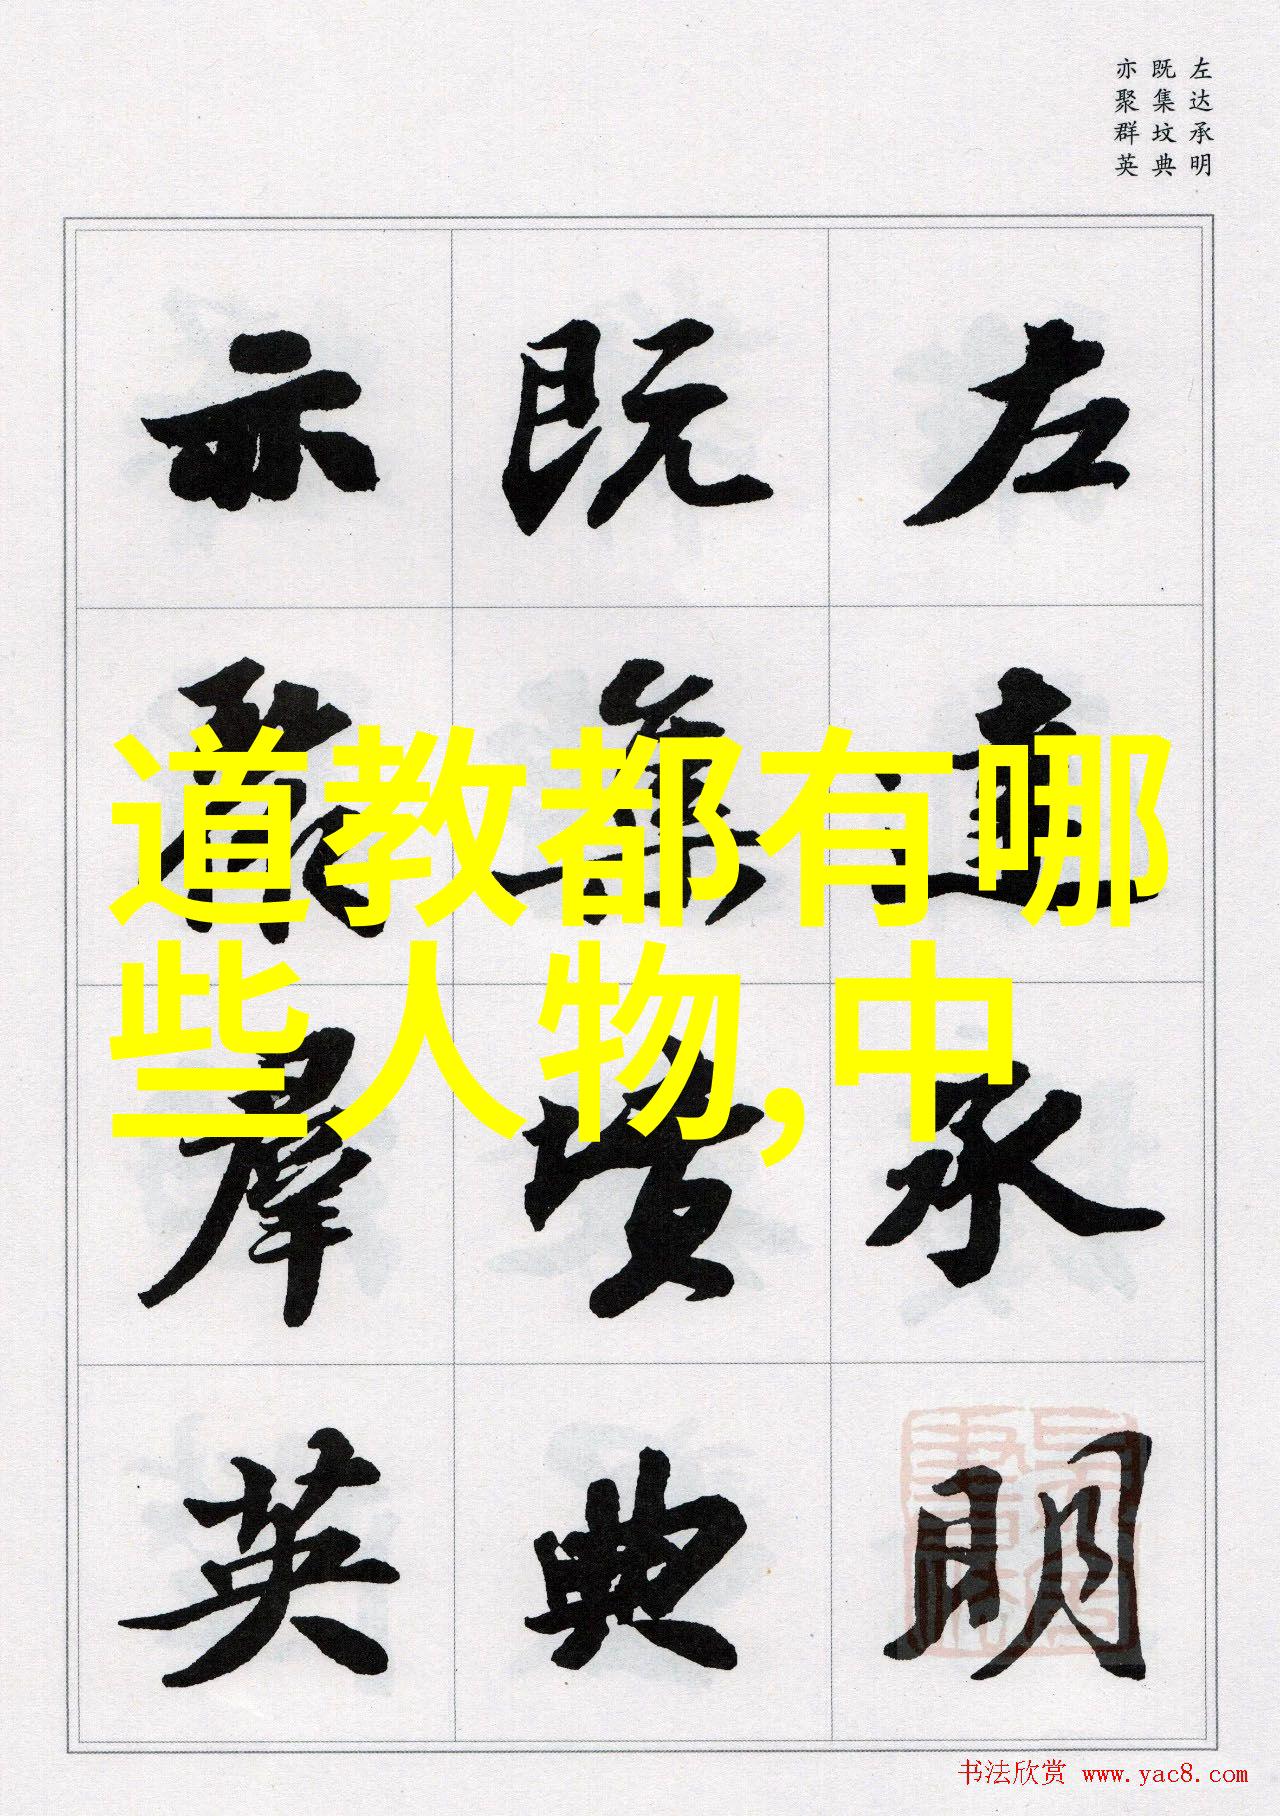 左达承明
既集坟典
亦聚群英
左達承明
既集墳典
亦聚群英
道教都有哪
些人物,中
书法欣赏 www.yac8.com